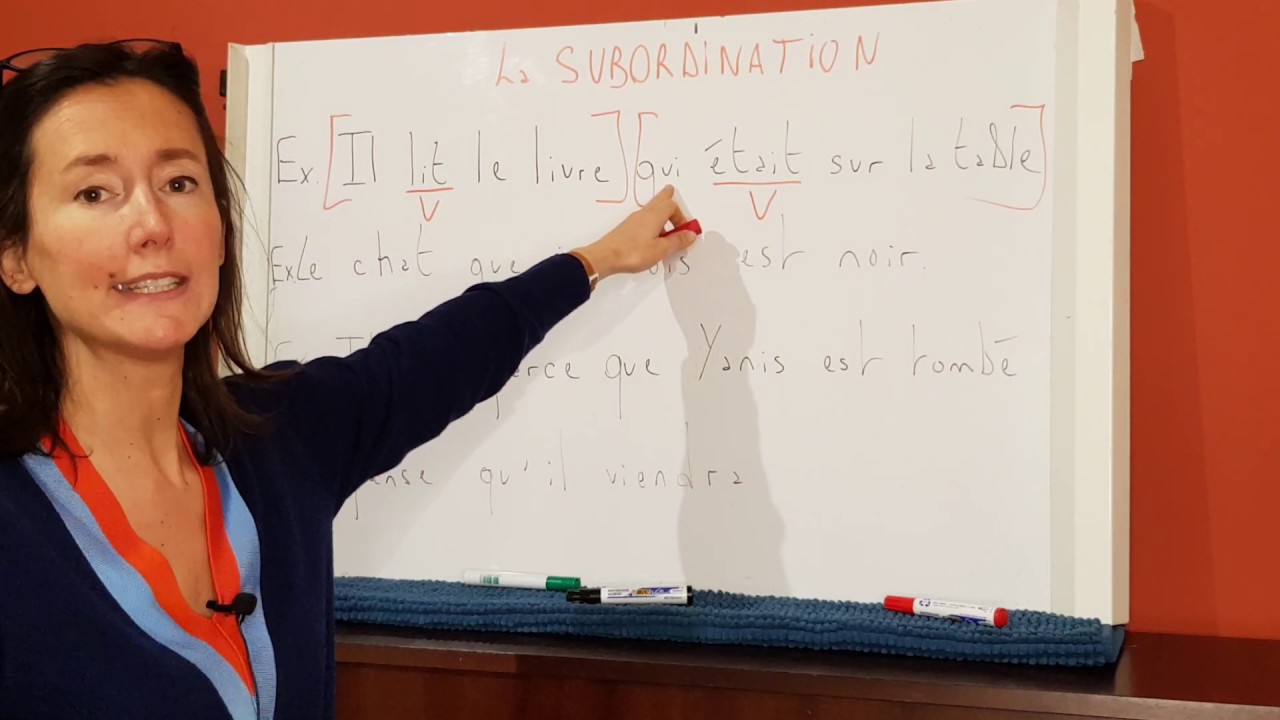 La SUBORDINATION
Ex. [Il lit le livre] [qui était sur la table]
V V
Ex Le chat que est noir.
que Yanis est tombé
qu'il viendra